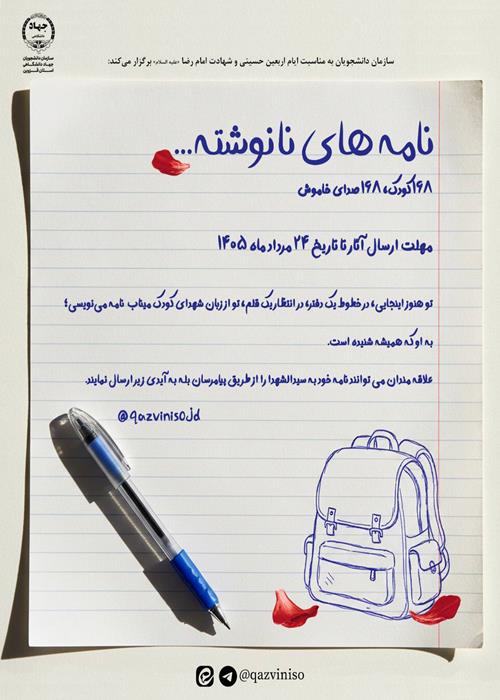 جهاد
دانشگاهی
سازمان دانشجویان
جهاد دانشگاهی
استان قزوین
سازمان دانشجویان به مناسبت ایام اربعین حسینی و شهادت امام رضا «علیه السلام» برگزار می‌کند:
نامه های نانوشته...
۱۶۸ کودک، ۱۶۸ صدای خاموش
مهلت ارسال آثار تا تاریخ ۲۴ مرداد ماه ۱۴۰۵
تو هنوز اینجایی، در خطوط یک دفتر، در انتظار یک قلم، تو از زبان شهدای کودک میناب نامه می‌نویسی؛
به او که همیشه شنیده است.
علاقه مندان می توانند نامه خود به سیدالشهدا را از طریق پیامرسان بله به آیدی زیر ارسال نمایند.
@qazvinisojd
@qazviniso